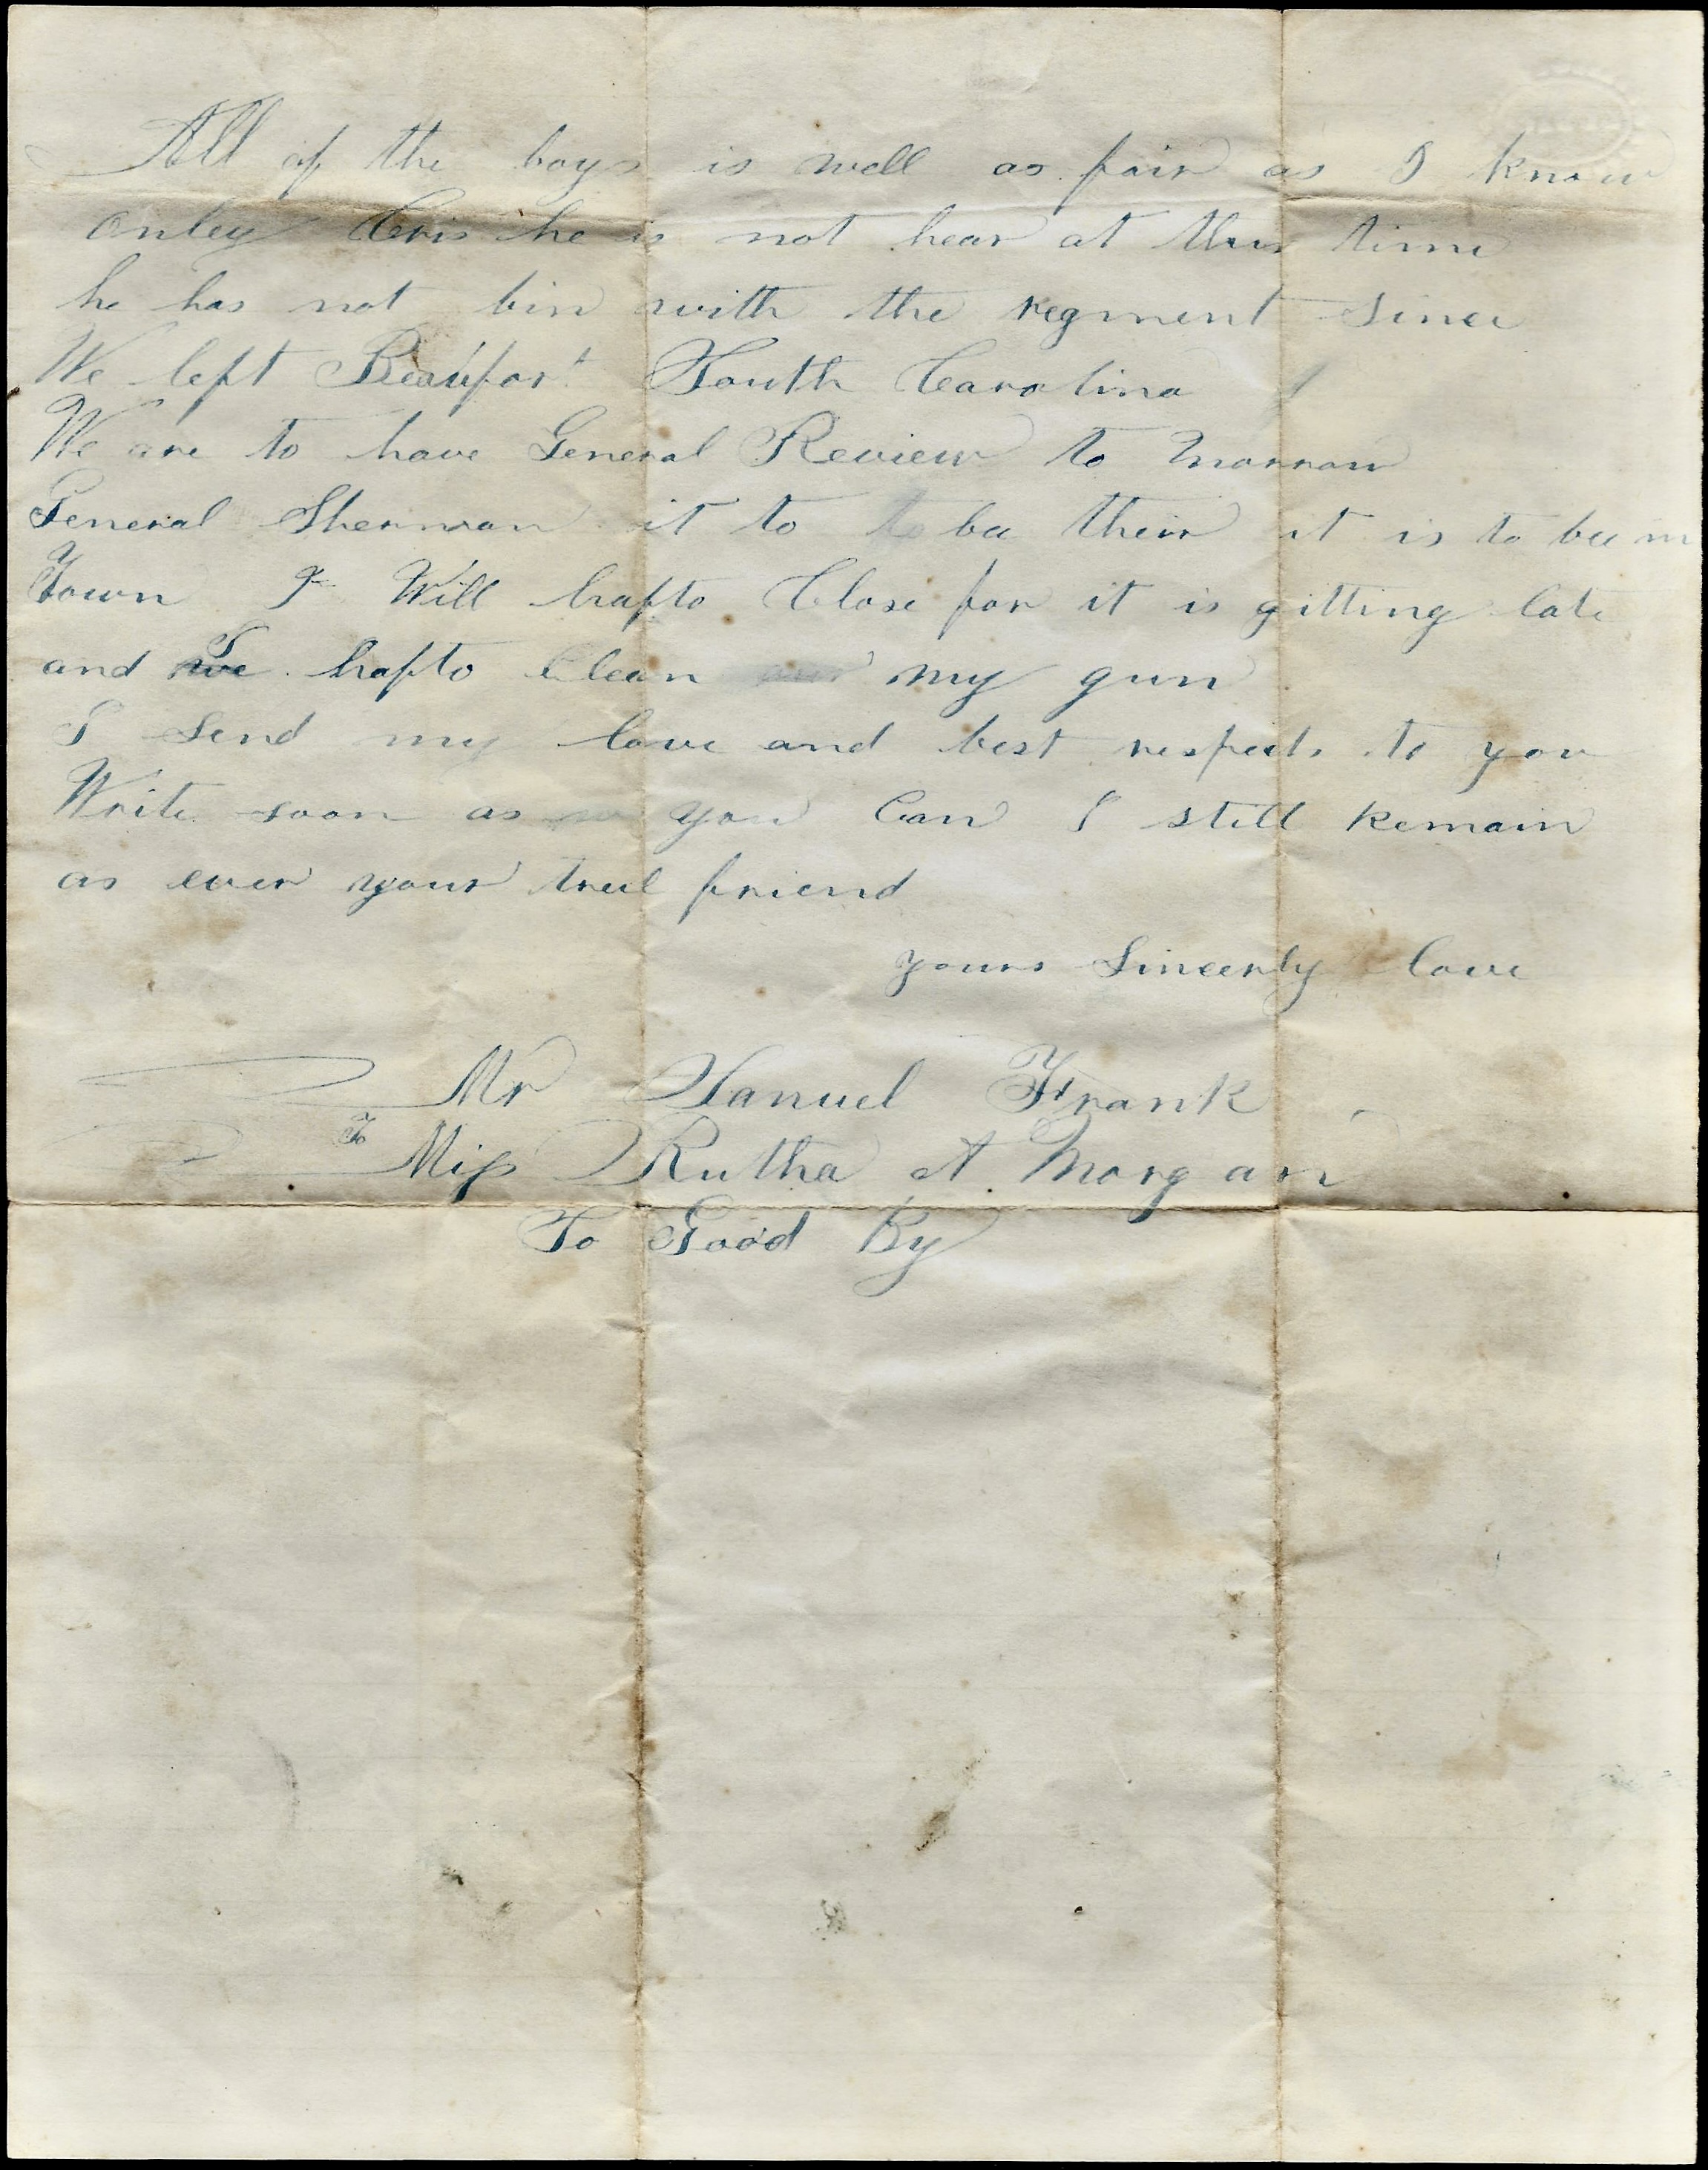 All of the boys is well as fair as I know
onley Cris he is not hear at this time
he has not bin with the regment since
We left Beaufort South Carolina
We are to have General Review to morrow
General Sherman it to to be their it is to bee in
Town I Will hafto Close for it is gitting late
and I hafto Clean my gun
I Send my love and best respects to you
Write soon as you Can I still Remain
as ever your treul friend
yours Sincerly love
Mr Samuel Frank
To Miss Rutha A Morgan
To Good By